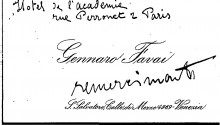 Hotel de l'academie
rue Perronet 2 Paris
Gennaro Favai
remerciments
S. Salvatore, Calle del Monte 4249 - Venezia